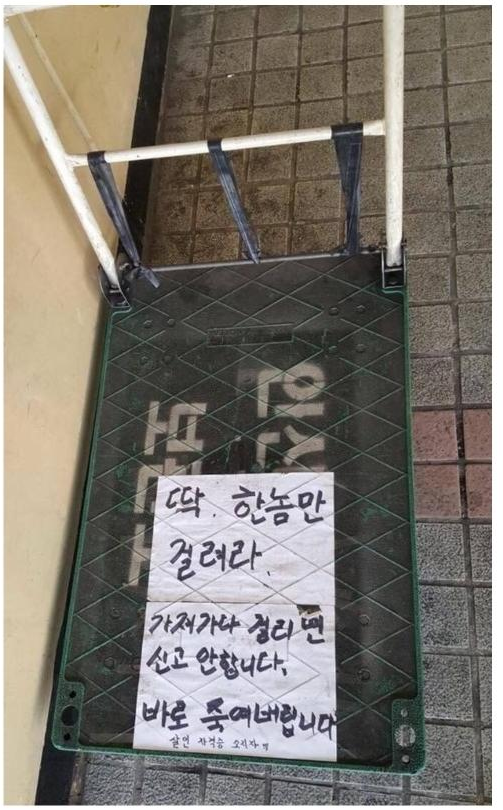 딱. 한놈만
걸려라.
가저가다 걸리면
신고 안합니다.
바로 죽여버립니다
살인 자격증 소지자